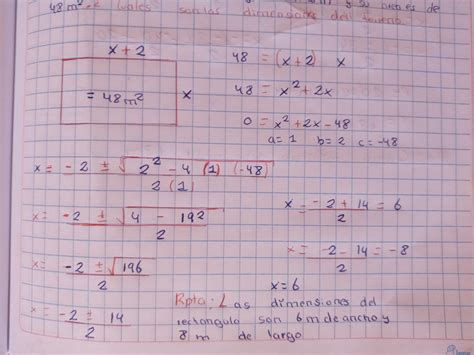 48 m². ¿ cuales son las dimensiones del terreno
x + 2
= 48 m²
x
48 = (x+2) x
48 = x² + 2x
0 = x² + 2x - 48
a = 1 b = 2 c = -48
x = -2 ± √2² - 4 (1) (-48)
2 (1)
x = -2 ± √4 - 192
2
x = -2 ± √196
2
x = -2 ± 14
2
x = -2 + 14 = 6
2
x = -2 - 14 = -8
2
x = 6
Rpta: Las dimensiones del
rectangulo son 6 m de ancho y
8 m de largo